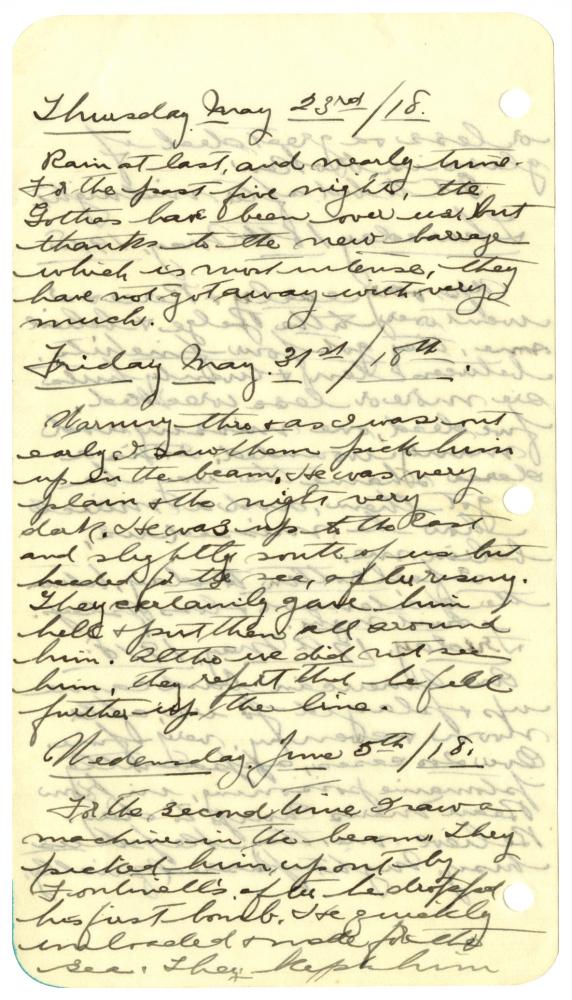 Thursday May 23rd/18.
Rain at last, and nearly time.
For the past five nights, the
Gothas have been over us, but
thanks to the new barrage
which is most intense, they
have not got away with very
much.
Friday May. 31st/18th.
Warning thro + as I was out
early I saw them pick him
up in the beam. He was very
plain + the night very
dark. He was up to the East
and slightly south of us but
headed for the sea, after rising.
They certainly gave him
hell + put them all around
him. Altho we did not see
him, they report that he fell
further up the line.
Wednesday, June 5th/18.
For the second time I saw a
machine in the beam. They
picked him up out by
Fontinell's after he dropped
his first bomb. He quickly
unloaded + made for the
sea. They kept him